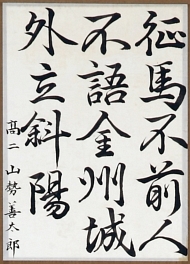 征馬不前人
不語金州城
外立斜陽
高二 山勢善太郎